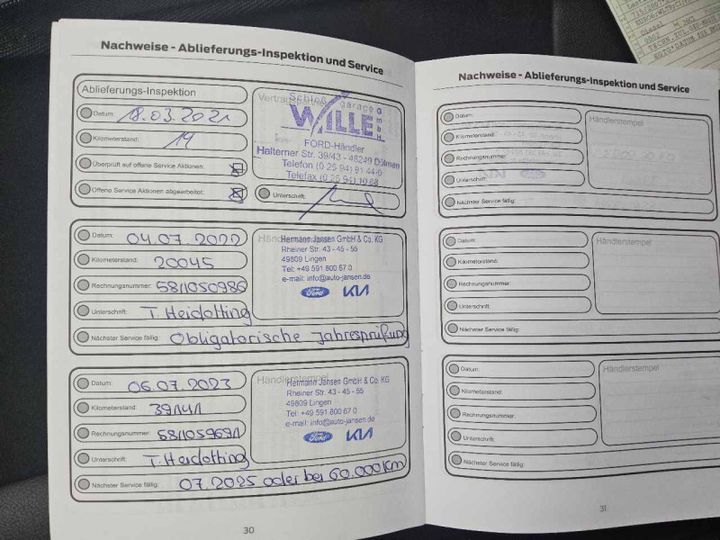 Nachweise - Ablieferungs-Inspektion und Service
Ablieferungs-Inspektion
Datum: 18.03.2021
Kilometerstand: 19
Überprüft auf offene Service Aktionen:
Offene Service Aktionen abgearbeitet:
Schloß garage GmbH
WILLE
FORD-Händler
Halterner Str. 39/43 - 48249 Dülmen
Telefon (0 25 94) 91 44-0
Telefax (0 25 94)
Unterschrift:
Datum: 04.07.2022
Kilometerstand: 20045
Rechnungsnummer: 5811050986
Unterschrift: T. Heidotting
Nächster Service fällig: Obligatorische Jahresprüfung
Hermann Jansen GmbH & Co. KG
Rheiner Str. 43 - 45 - 55
49809 Lingen
Tel: +49 591 800 67 0
e-mail: info@auto-jansen.de
Ford KIA
Datum: 06.07.2023
Kilometerstand: 39141
Rechnungsnummer: 5811059691
Unterschrift: T. Heidotting
Nächster Service fällig: 07.2025 oder bei 60.000km
Händlerstempel
Hermann Jansen GmbH & Co. KG
Rheiner Str. 43 - 45 - 55
49809 Lingen
Tel: +49 591 800 67 0
e-mail: info@auto-jansen.de
Ford KIA
30
Nachweise - Ablieferungs-Inspektion und Service
Datum:
Kilometerstand:
Rechnungsnummer:
Unterschrift:
Nächster Service fällig:
Händlerstempel
Datum:
Kilometerstand:
Rechnungsnummer:
Unterschrift:
Nächster Service fällig:
Händlerstempel
Datum:
Kilometerstand:
Rechnungsnummer:
Unterschrift:
Nächster Service fällig:
Händlerstempel
31